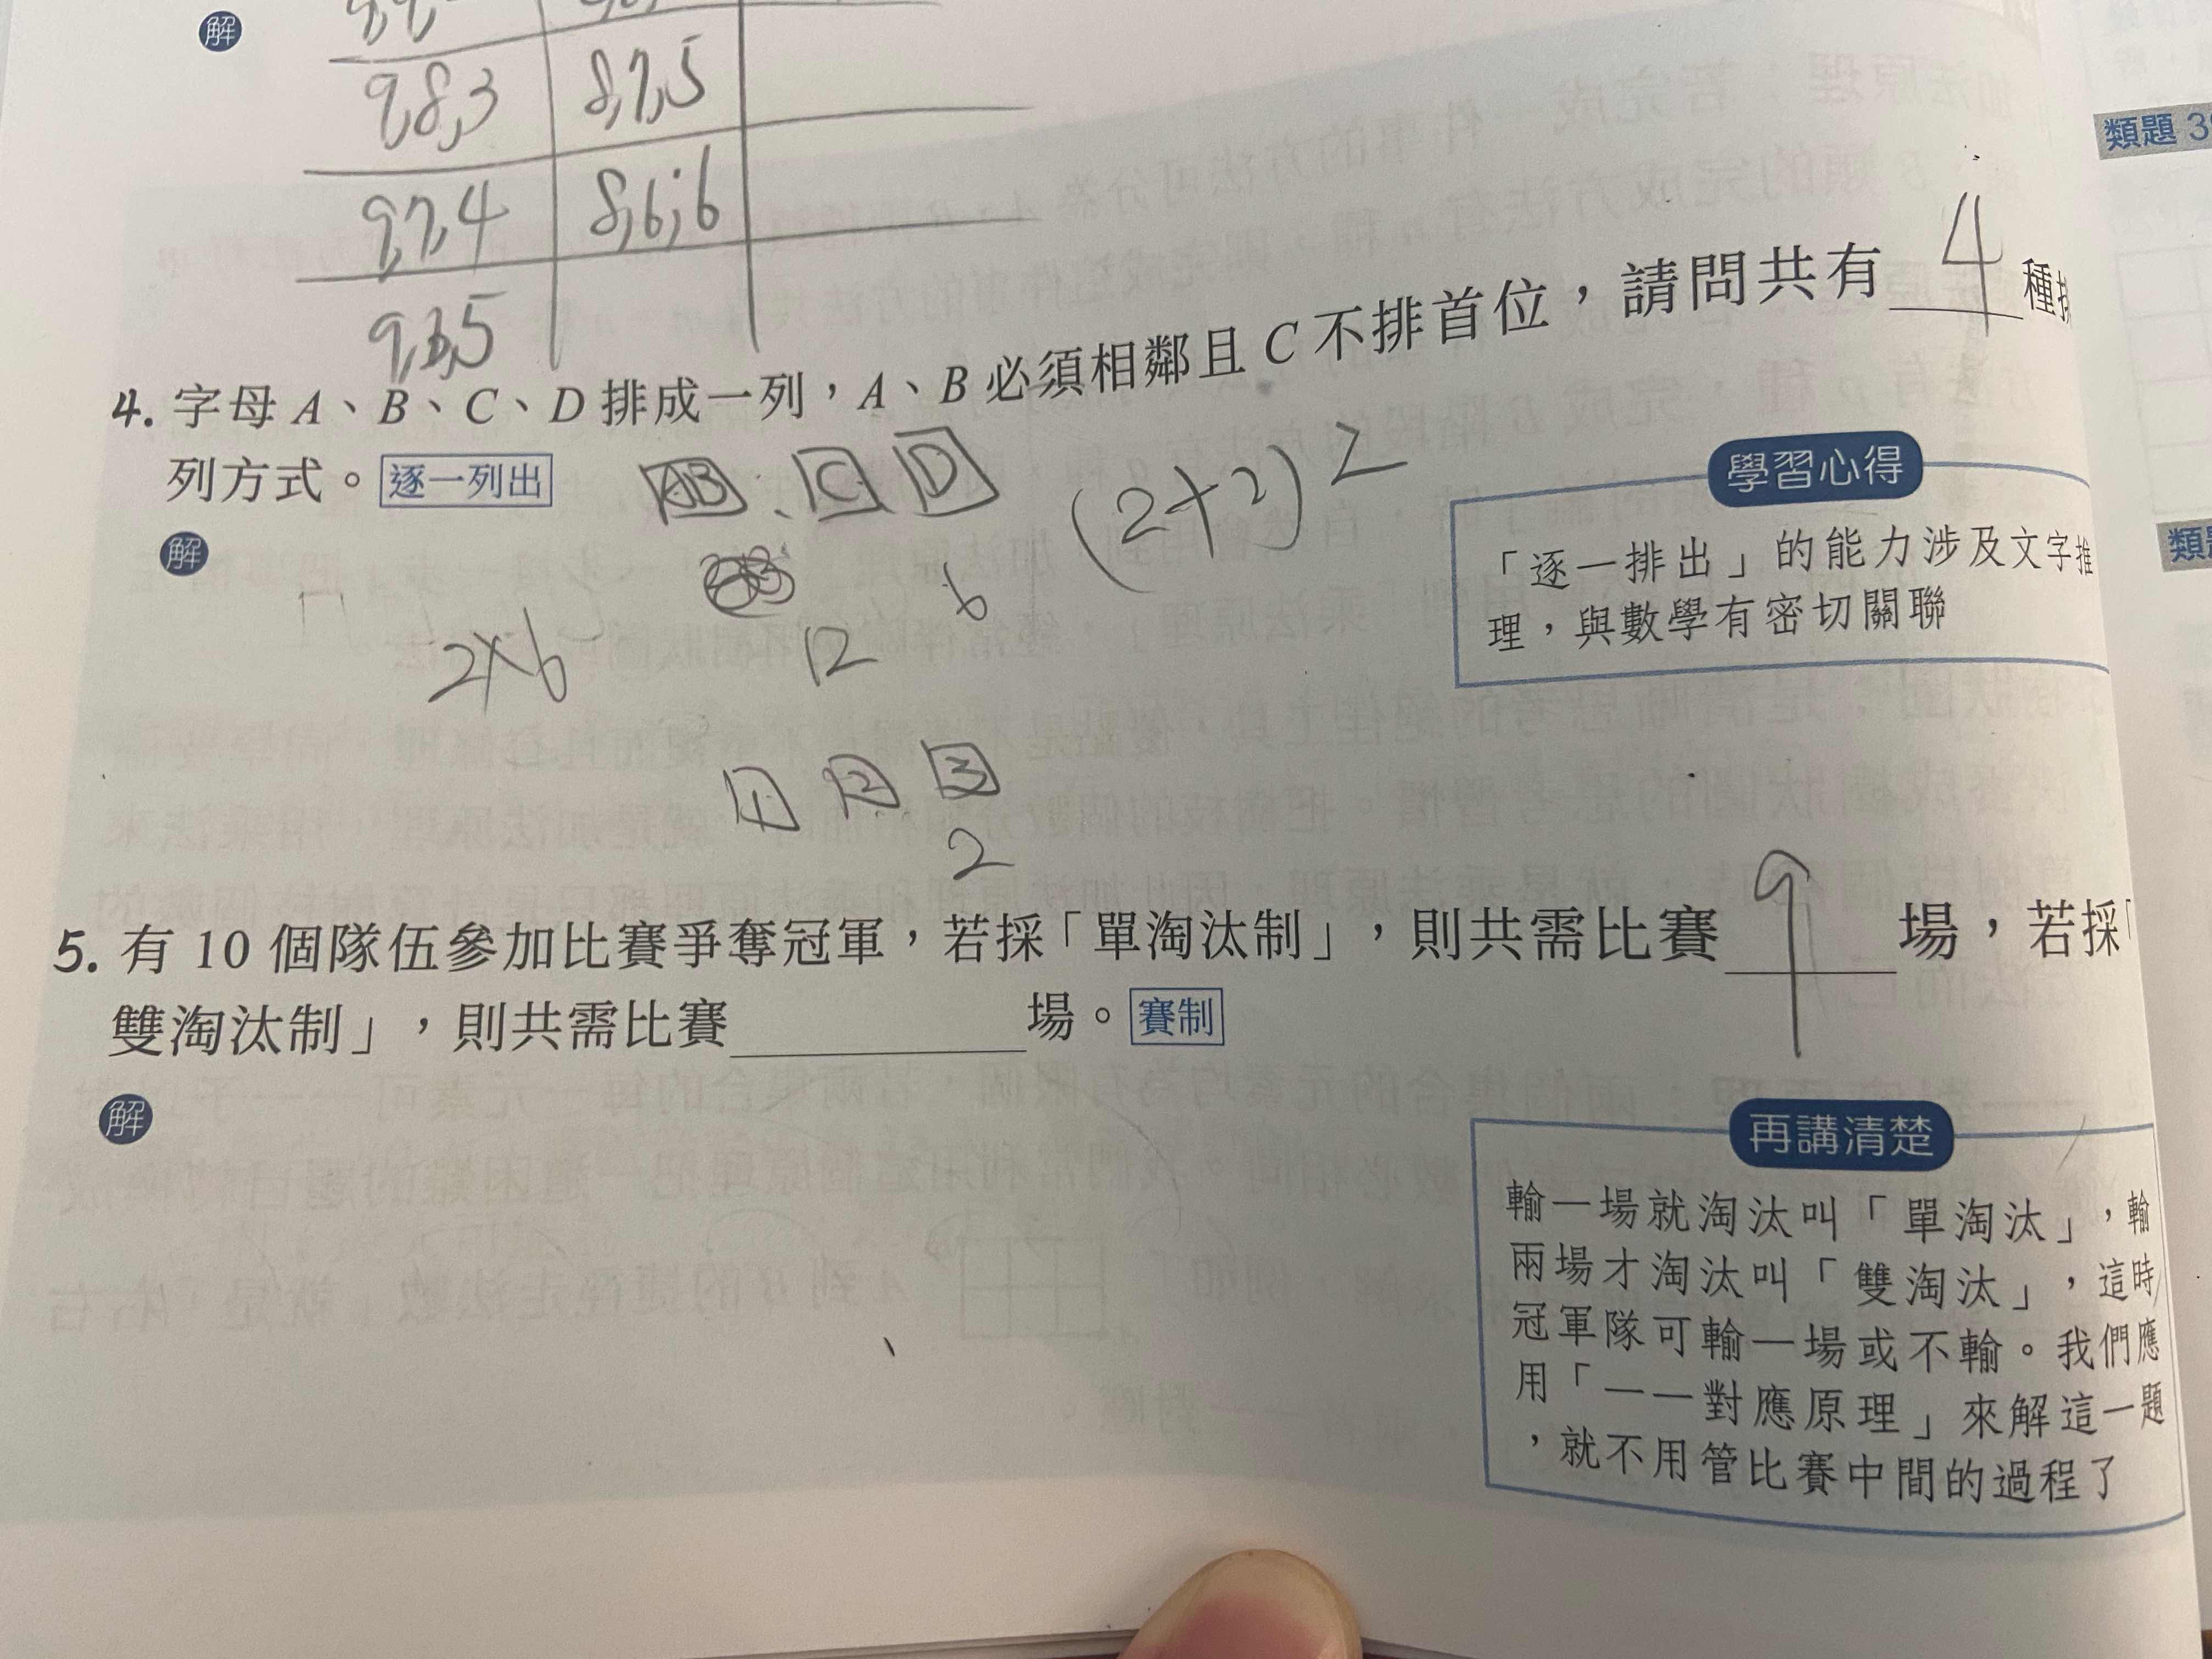 解
9,8,3 8,7,5
9,7,4 8,6,6
9,6,5
4. 字母 A、B、C、D 排成一列，A、B 必須相鄰且 C 不排首位，請問共有 4 種排
列方式。 逐一列出
AB C D (2+2) 2
解
6
2×6 12
1 2 3
2
學習心得
「逐一排出」的能力涉及文字推
理，與數學有密切關聯
5. 有 10 個隊伍參加比賽爭奪冠軍，若採「單淘汰制」，則共需比賽 9 場，若採「
雙淘汰制」，則共需比賽 場。 賽制
解
再講清楚
輸一場就淘汰叫「單淘汰」，輸
兩場才淘汰叫「雙淘汰」，這時
冠軍隊可輸一場或不輸。我們應
用「一一對應原理」來解這一題
，就不用管比賽中間的過程了
類題 3
類